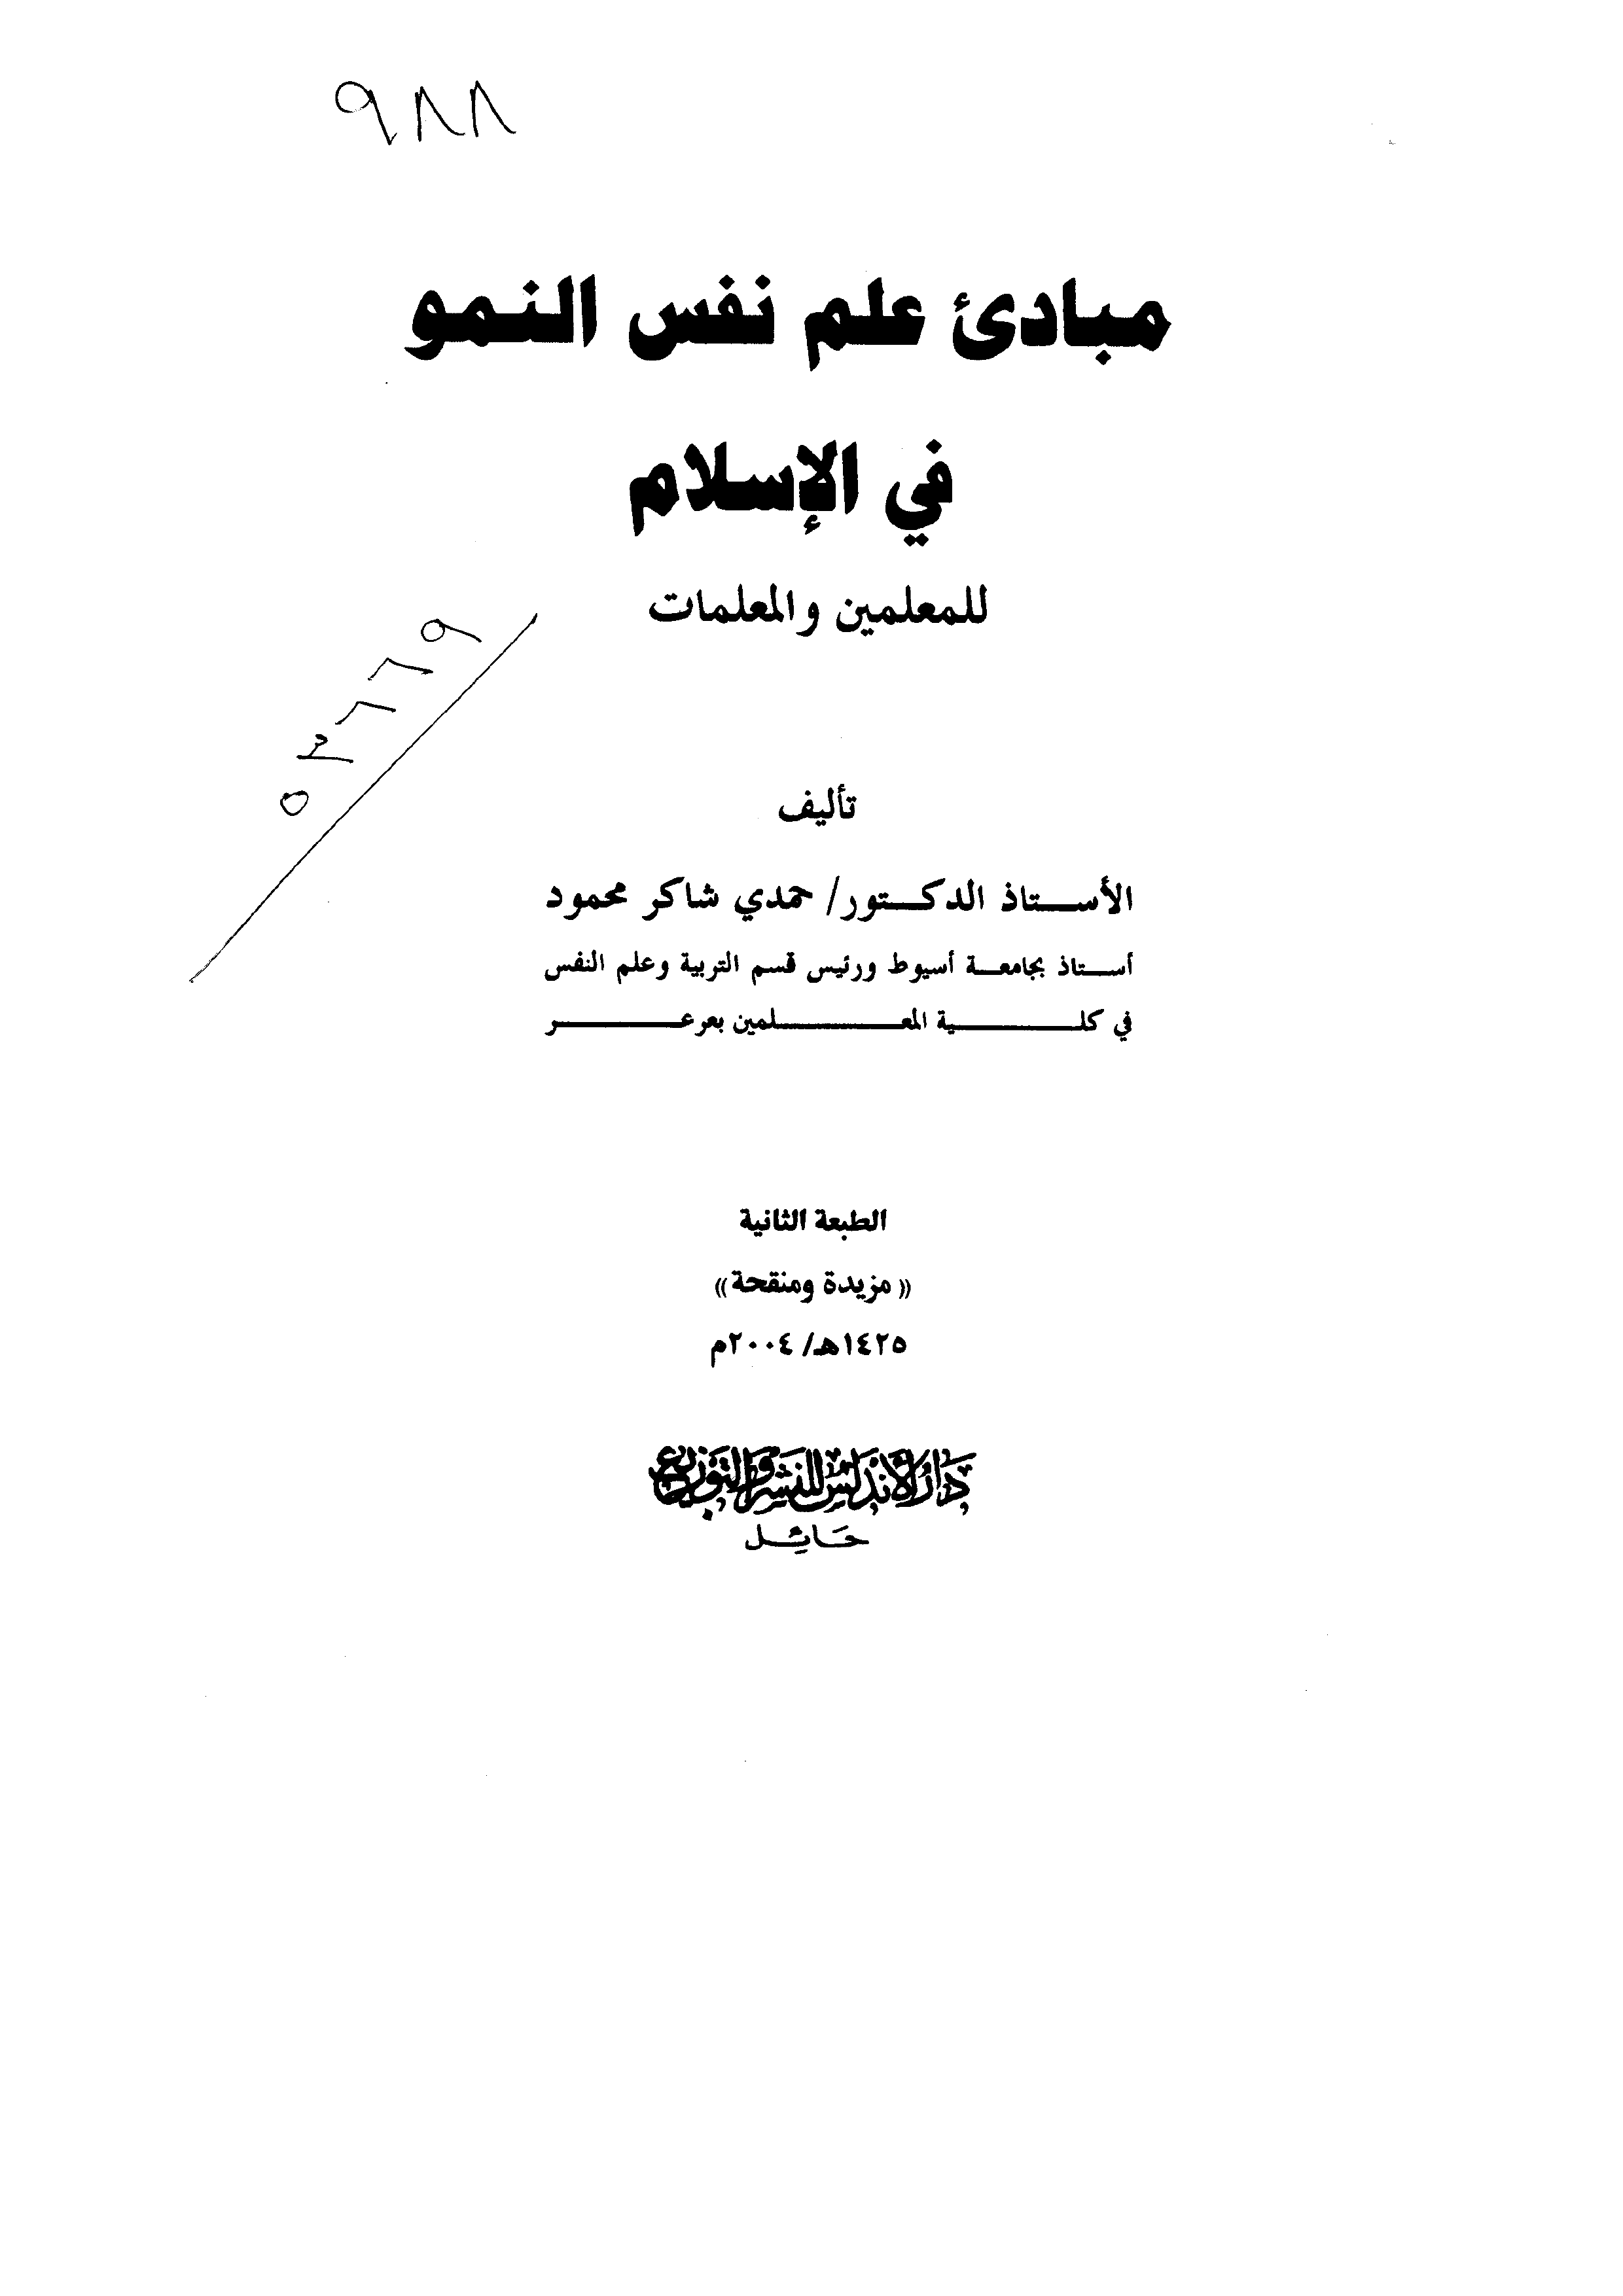 ٩٨٨
مبادئ علم نفس النمو
في الإسلام
للمعلمين والمعلمات
٥٣٦٦٩
تأليف
الأستاذ الدكتور/ حمدي شاكر محمود
أستاذ بجامعة أسيوط ورئيس قسم التربية وعلم النفس
في كلية المعلمين بعرعر
الطبعة الثانية
«مزيدة ومنقحة»
١٤٢٥هـ/ ٢٠٠٤م
دار الأندلس للنشر والتوزيع
حائل